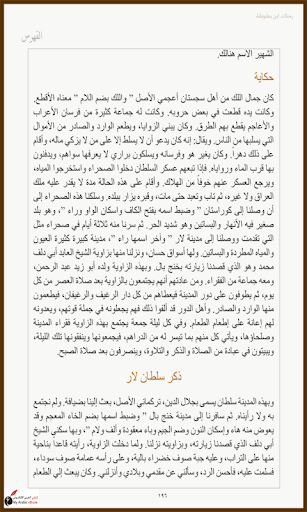 رحلات ابن بطوطة
الفهرس
الشهير الاسم هنالك.
حكاية
كان جمال اللك من أهل سجستان أعجمي الأصل " واللك بضم اللام " معناه الأقطع.
وكانت يده قطعت في بعض حروبه. وكانت له جماعة كثيرة من فرسان الأعراب
والأعاجم يقطع بهم الطرق. وكان يبني الزوايا، ويطعم الوارد والصادر من الأموال
التي يسلبها من الناس. ويقال: إنه كان يدعو أن لا يسلط إلا على من لا يزكي ماله، وأقام
على ذلك دهراً. وكان يغير هو وفرسانه ويسلكون براري لا يعرفها سواهم، ويدفنون
بها قرب الماء ورواياه. فإذا تبعهم عسكر السلطان دخلوا الصحراء واستخرجوا المياه،
ويرجع العسكر عنهم خوفاً من الهلاك. وأقام على هذه الحالة مدة لا يقدر عليه ملك
العراق ولا غيره، ثم تاب وتعبد حتى مات، وقبره يزار ببلده. وسلكنا هذه الصحراء إلى
أن وصلنا إلى كوراستان " وضبط اسمه بفتح الكاف واسكان الواو وراء "، وهو بلد
صغير فيه الأنهار والبساتين وهو شديد الحر. ثم سرنا منه ثلاثة أيام في صحراء مثل
التي تقدمت ووصلنا إلى مدينة لار " وآخر اسمها راء "، مدينة كبيرة كثيرة العيون
والمياه المطردة والبساتين. ولها أسواق حسان، ونزلنا منها بزاوية الشيخ العابد أبي دلف
محمد وهو الذي قصدنا زيارته بخنج بال. وبهذه الزاوية ولده أبو زيد عبد الرحمن،
ومعه جماعة من الفقراء. ومن عادتهم أنهم يجتمعون بالزاوية بعد صلاة العصر من كل
يوم، ثم يطوفون على دور المدينة فيعطاهم من كل دار الرغيف والرغيفان، فيطعمون
منها الوارد والصادر. وأهل الدور قد ألفوا ذلك فهم يجعلونه في جملة قوتهم، ويعدونه
لهم إعانة على إطعام الطعام. وفي كل ليلة جمعة يجتمع بهذه الزاوية فقراء المدينة
وصلحاؤها، ويأتي كل منهم بما تيسر له من الدراهم، فيجمعونها وينفقونها تلك الليلة،
ويبيتون في عبادة من الصلاة والذكر والتلاوة، وينصرفون بعد صلاة الصبح.
ذكر سلطان لار
وبهذه المدينة سلطان يسمى بجلال الدين، تركماني الأصل، بعث إلينا بضيافة. ولم نجتمع
به ولا رأيناه. ثم سافرنا إلى مدينة خنج بال " وضبط اسمها بضم الخاء المعجم وقد
يعوض منه هاء وإسكان النون وضم الجيم وباء معقودة وألف ولام "، وبها سكنى الشيخ
أبي دلف الذي قصدنا زيارته، وبزاويته نزلنا. ولما دخلت الزاوية، رأيته قاعداً بناحية
منها على التراب، وعليه جبة صوف خضراء بالية، وعلى رأسه عمامة صوف سوداء،
فسلمت عليه، فأحسن الرد، وسألني عن مقدمي وبلادي وأنزلني. وكان يبعث إلي الطعام
١٩٦
My Arabic Library